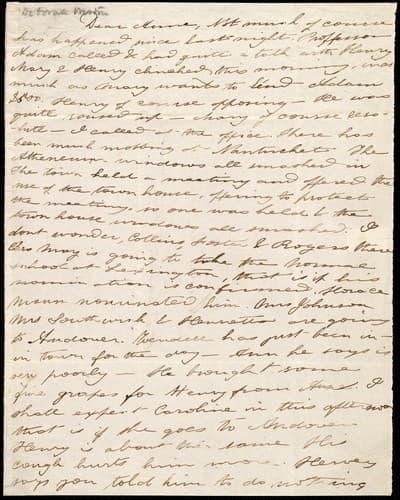 Deborah Weston
Dear Anne, Not much of course
has happened since last night. Professor
Adam called & had quite a talk with Henry
Mary & Henry clinched this morning, inas
much as Mary wants to lend Adam
2500. Henry of course opposing - He was
quite roused up - Mary of course reso-
lute - I called at the office. There has
been much mobbing at Nantucket. The
Atheneum windows all smashed in
The town held a meeting and offered the
use of the town house, offering to protect
the meeting, so one was held & the
town house windows all smashed. I
dont wonder, Collins, Foster & Rogers there
Mr May is going to take the Normal
school at Lexington, that is if his
nomination is confirmed. Horace
Mann nominated him. Mrs Johnson
Mrs Southwick & Henrietta are going
to Andover. Wendell has just been in -
in town for the day - Ann he says is
very poorly - He brought some
fine grapes for Henry from I
shall expect Caroline in this afternoon
that is if she goes to Andover
Henry is about the same His
cough hurts him more. Hervey
says you told him to do nothing